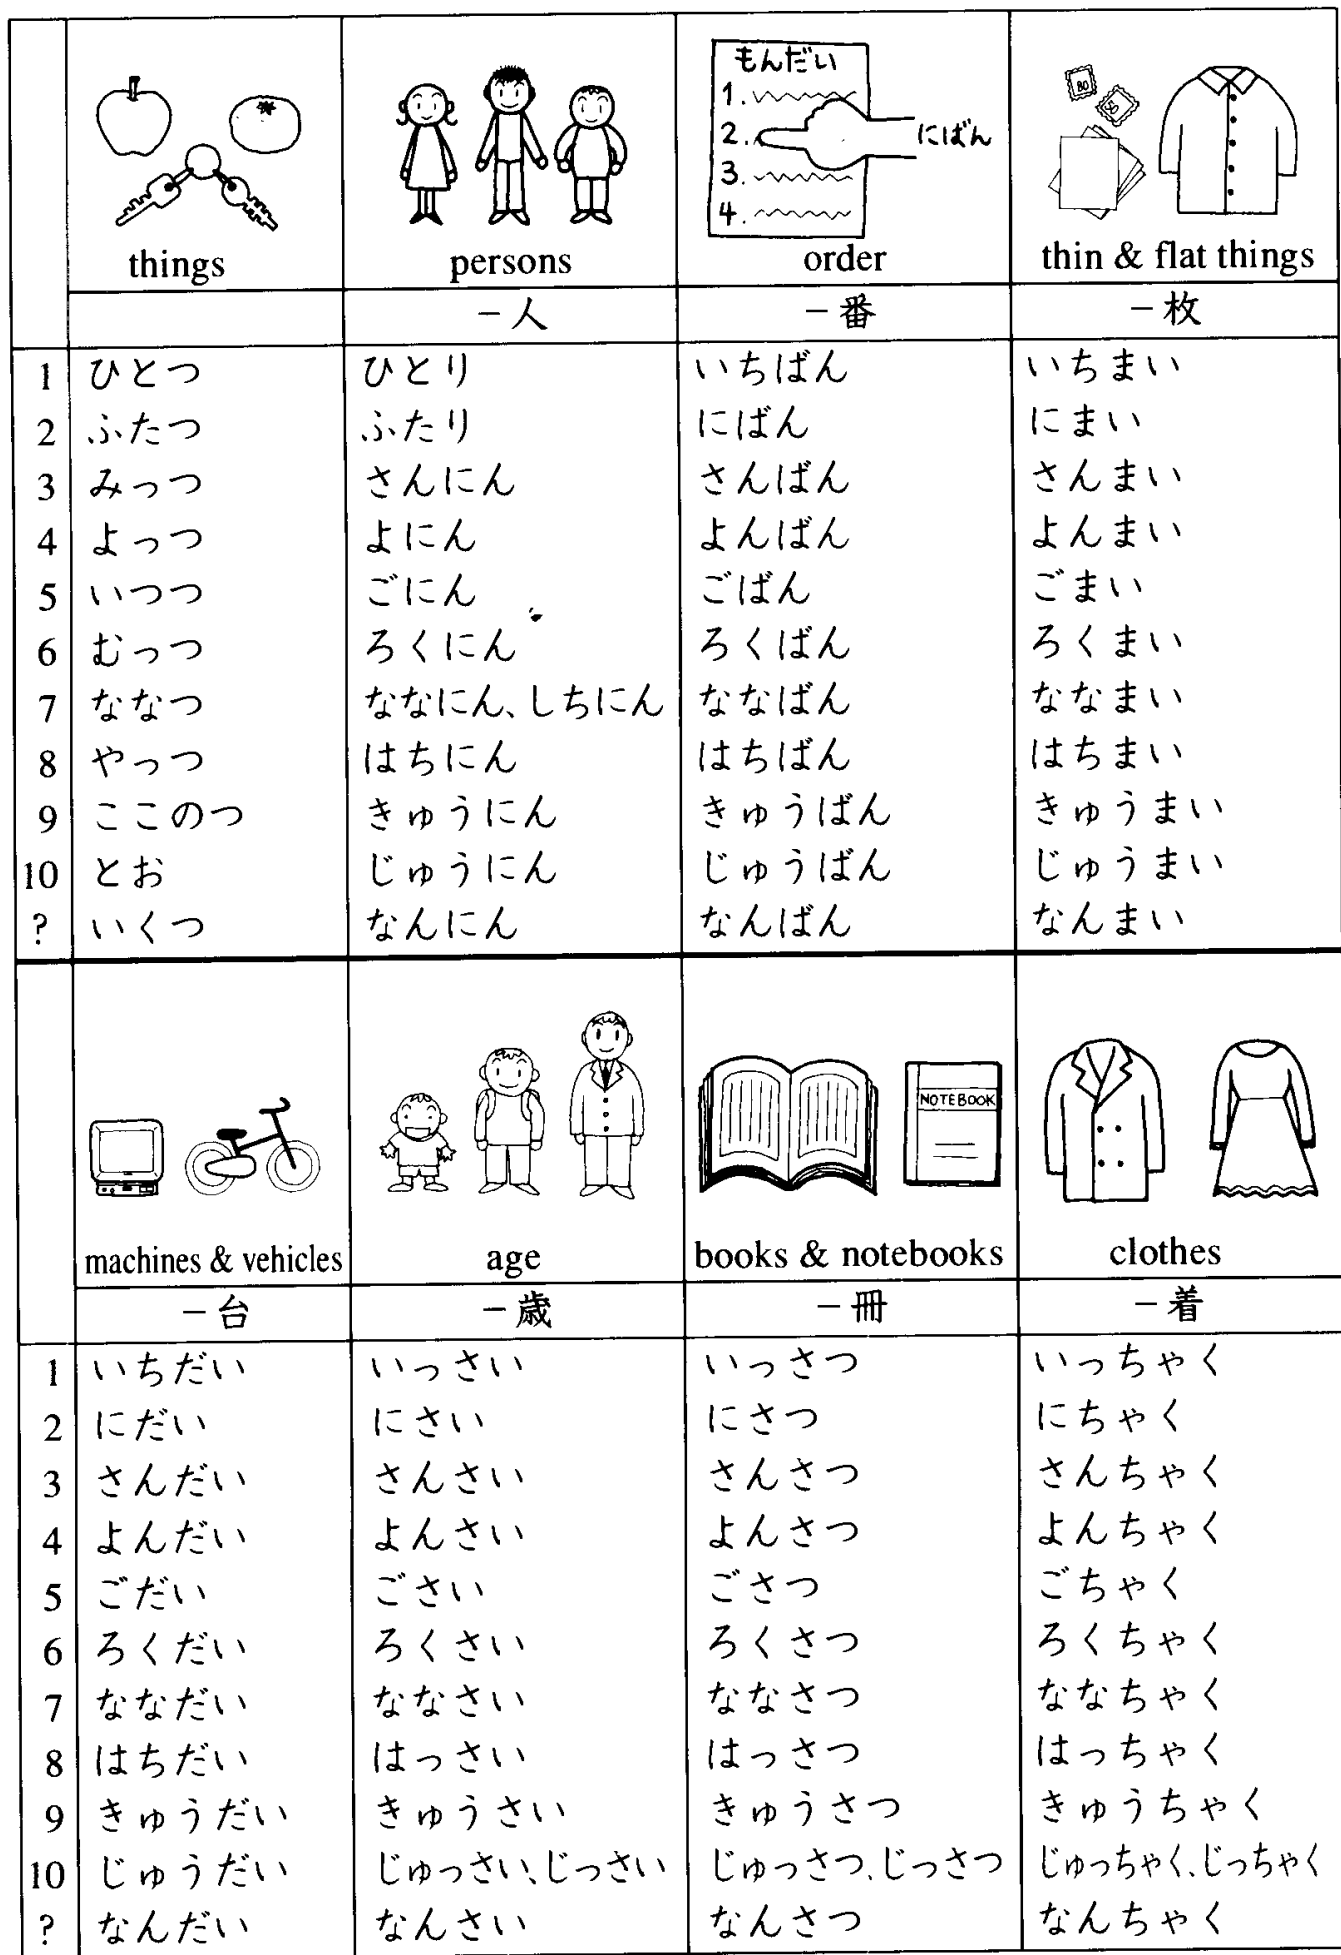 もんだい
1.
2.
3.
4.
にばん
80
things persons order thin & flat things
－人 －番 －枚
1 ひとつ ひとり いちばん いちまい
2 ふたつ ふたり にばん にまい
3 みっつ さんにん さんばん さんまい
4 よっつ よにん よんばん よんまい
5 いつつ ごにん ごばん ごまい
6 むっつ ろくにん ろくばん ろくまい
7 ななつ ななにん、しちにん ななばん ななまい
8 やっつ はちにん はちばん はちまい
9 ここのつ きゅうにん きゅうばん きゅうまい
10 とお じゅうにん じゅうばん じゅうまい
? いくつ なんにん なんばん なんまい
NOTEBOOK
machines & vehicles age books & notebooks clothes
－台 －歳 －冊 －着
1 いちだい いっさい いっさつ いっちゃく
2 にだい にさい にさつ にちゃく
3 さんだい さんさい さんさつ さんちゃく
4 よんだい よんさい よんさつ よんちゃく
5 ごだい ごさい ごさつ ごちゃく
6 ろくだい ろくさい ろくさつ ろくちゃく
7 ななだい ななさい ななさつ ななちゃく
8 はちだい はっさい はっさつ はっちゃく
9 きゅうだい きゅうさい きゅうさつ きゅうちゃく
10 じゅうだい じゅっさい、じっさい じゅっさつ、じっさつ じゅっちゃく、じっちゃく
? なんだい なんさい なんさつ なんちゃく